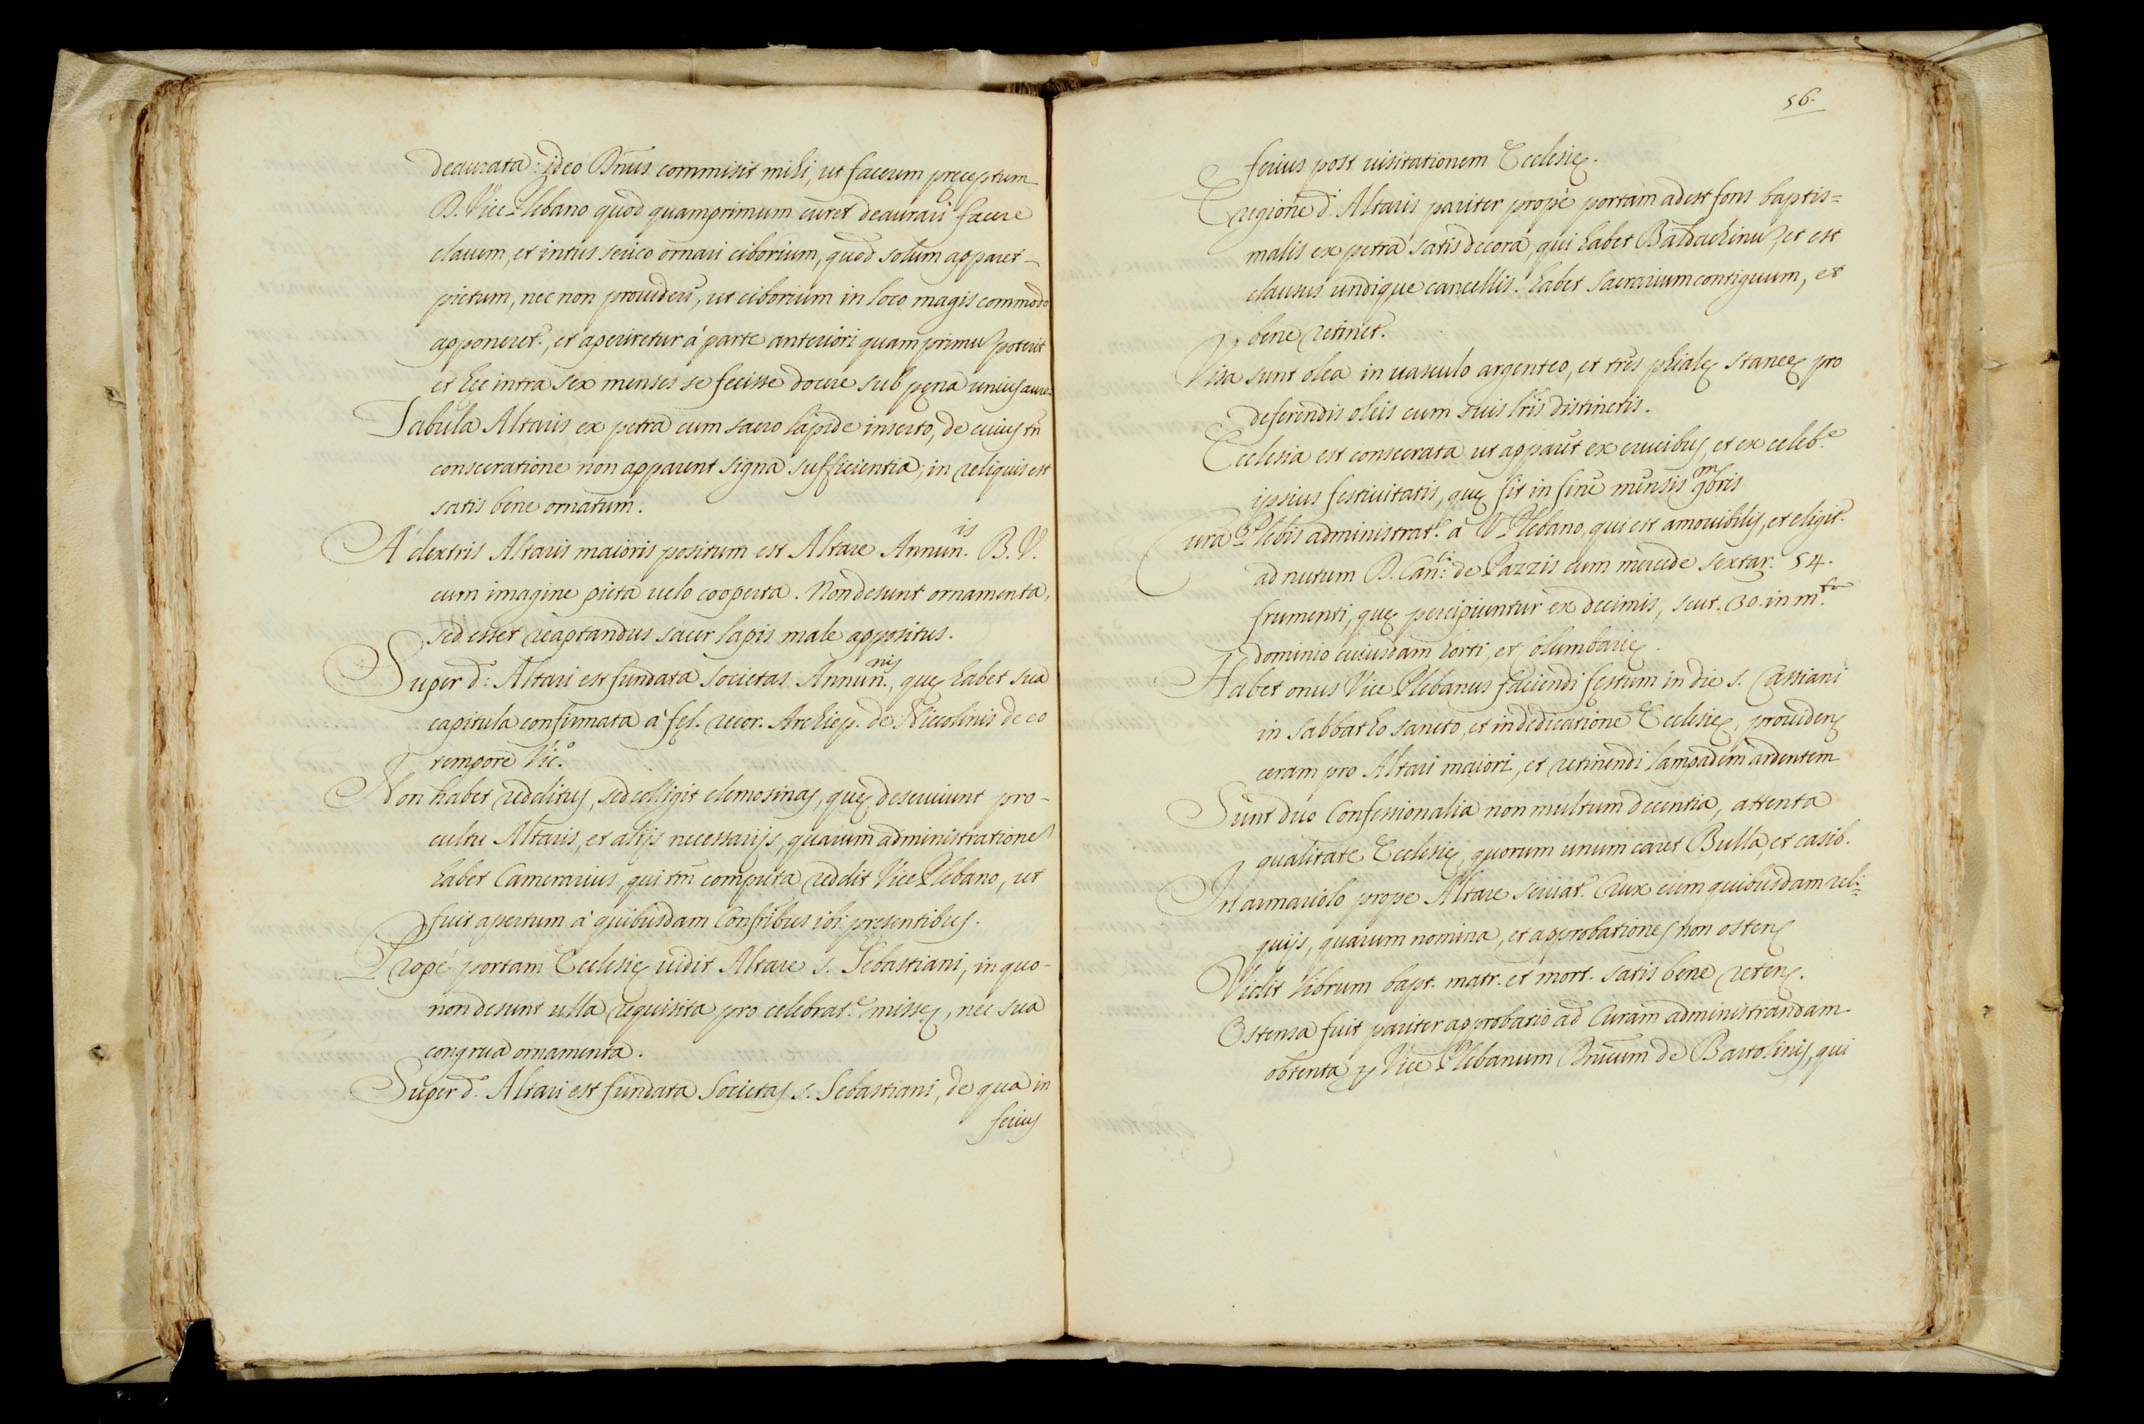 deaurata: ideo Dnus commisit mihi, ut facerem pręceptum
D. Vice Plebano quod quamprimum curet deaurari facere
clavum, et intus serico ornari ciborium, quod solum apparet
pictum, nec non providers, ut ciborium in loco magis commodo
apponeret., et aperiretur à parte anteriori quam primu poterit
et hęc intra sex menses se fecisse docere sub pęna unius aure.
Tabula Altaris ex petra cum sacro lapide inserto, de cuius tn
consecratione non apparent signa sufficientia, in reliquis est
satis bene ornatum.
A' dextris Altaris maioris positum est Altare Annun.is B. V.
cum imagine picta velo cooperta. Non desunt ornamenta,
sed esset reaptandus sacer lapis male appositus.
Super d: Altari est fundata societas Annun.nis, quę habet sua
capitula confirmata à fęl. recor. Archiep. de Niccolinis de eo
tempore Vic.o
Non habet redditus, sed colligit elemosinas, quę deserviunt pro
cultu Altaris, et alijs necessarijs, quarum administratione
habet Camerarius, qui tm computa reddit Vice Plebano, ut
fuit apertum à quibusdam Confribus ibi presentibus.
Propè portam Ecclesię vidit Altare S. Sebastiani, in quo
non desunt ulla requisita pro celebrat.e missę, nec sua
congrua ornamenta.
Super d. Altari est fundata Societas s. Sebastiani, de qua in
ferius
56.
ferius post visitationem Ecclesię.
E regione d. Altaris pariter propè portam adest fons baptis=
malis ex petra satis decora, qui habet Baldachinu, et est
clausus undique cancellis. habet sacrarium contiguum, et
bene retinet.
Visa sunt olea in vasculo argenteo, et tres phialę staneę pro
deferendis oleis cum suis lris distinctis.
Ecclesia est consecrata ut apparet ex crucibus, et ex celeb.e
ipsius festivitatis, quę fit in fine mensis 9mbris
Cura Plebis administrat.r à V. Plebano, qui est amovibilis, et eligit.
ad nutum D. Can.ci de Pazzis cum mercede sextar: 54.
frumenti, quę percipiuntur ex decimis, scut. 30. in m.ta
dominio cuiusdam horti, et columbarię.
Habet onus Vice Plebanus faciendi festum in die s. Cassiani
in sabbatho sancto, et in dedicatione Ecclesię, providens
ceram pro Altari maiori, et retinendi lampadem ardentem
Sunt duo Confessionalia non multum decentia, attenta
qualitate Ecclesię, quorum unum caret Bulla, et casib.
In armariolo prope Altare servat.r Crux cum quibusdam reli=
quijs, quarum nomina, et approbationes non ostens
Vidit librum bapt. matr. et mort. satis bene retens.
Ostensa fuit pariter approbatio ad Curam administrandam
obtenta p Vice Plebanum Dnicum de Bartolinis, qui